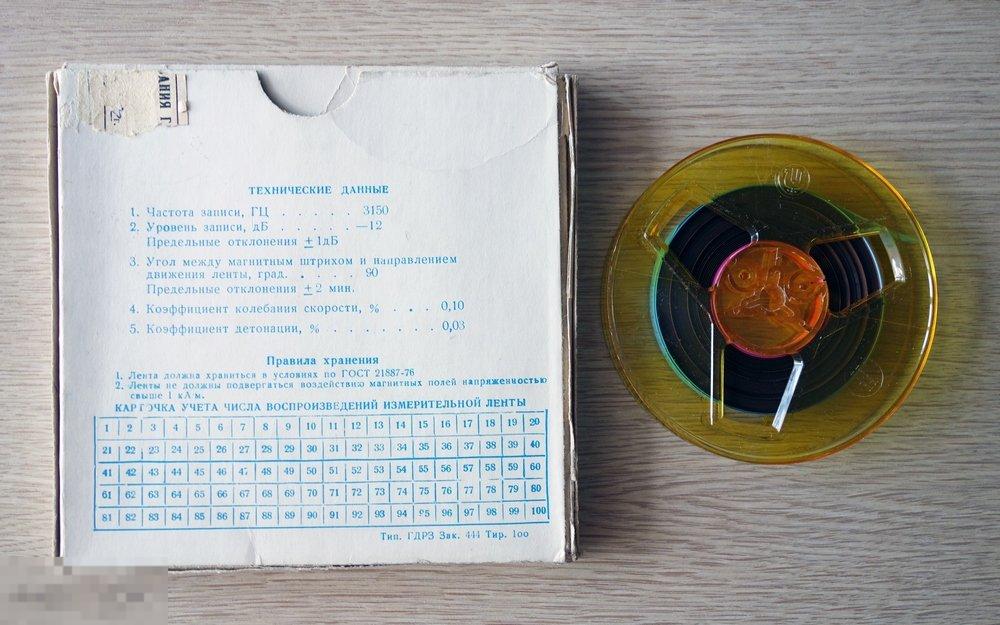 ТЕХНИЧЕСКИЕ ДАННЫЕ
1. Частота записи, ГЦ . . . . . 3150
2. Уровень записи, дБ . . . . . —12
Предельные отклонения ± 1дБ
3. Угол между магнитным штрихом и направлением
движения ленты, град. . . . . 90
Предельные отклонения ± 2 мин.
4. Коэффициент колебания скорости, % . . . 0,10
5. Коэффициент детонации, % . . . . . . . 0,03
Правила хранения
1. Лента должна храниться в условиях по ГОСТ 21887-76
2. Ленты не должны подвергаться воздействию магнитных полей напряженностью
свыше 1 кА/м.
КАРТОЧКА УЧЕТА ЧИСЛА ВОСПРОИЗВЕДЕНИЙ ИЗМЕРИТЕЛЬНОЙ ЛЕНТЫ
1 2 3 4 5 6 7 8 9 10 11 12 13 14 15 16 17 18 19 20
21 22 23 24 25 26 27 28 29 30 31 32 33 34 35 36 37 38 39 40
41 42 43 44 45 46 47 48 49 50 51 52 53 54 55 56 57 58 59 60
61 62 63 64 65 66 67 68 69 70 71 72 73 74 75 76 77 78 79 80
81 82 83 84 85 86 87 88 89 90 91 92 93 94 95 96 97 98 99 100
Тип. ГДРЗ Зак. 444 Тир. 100